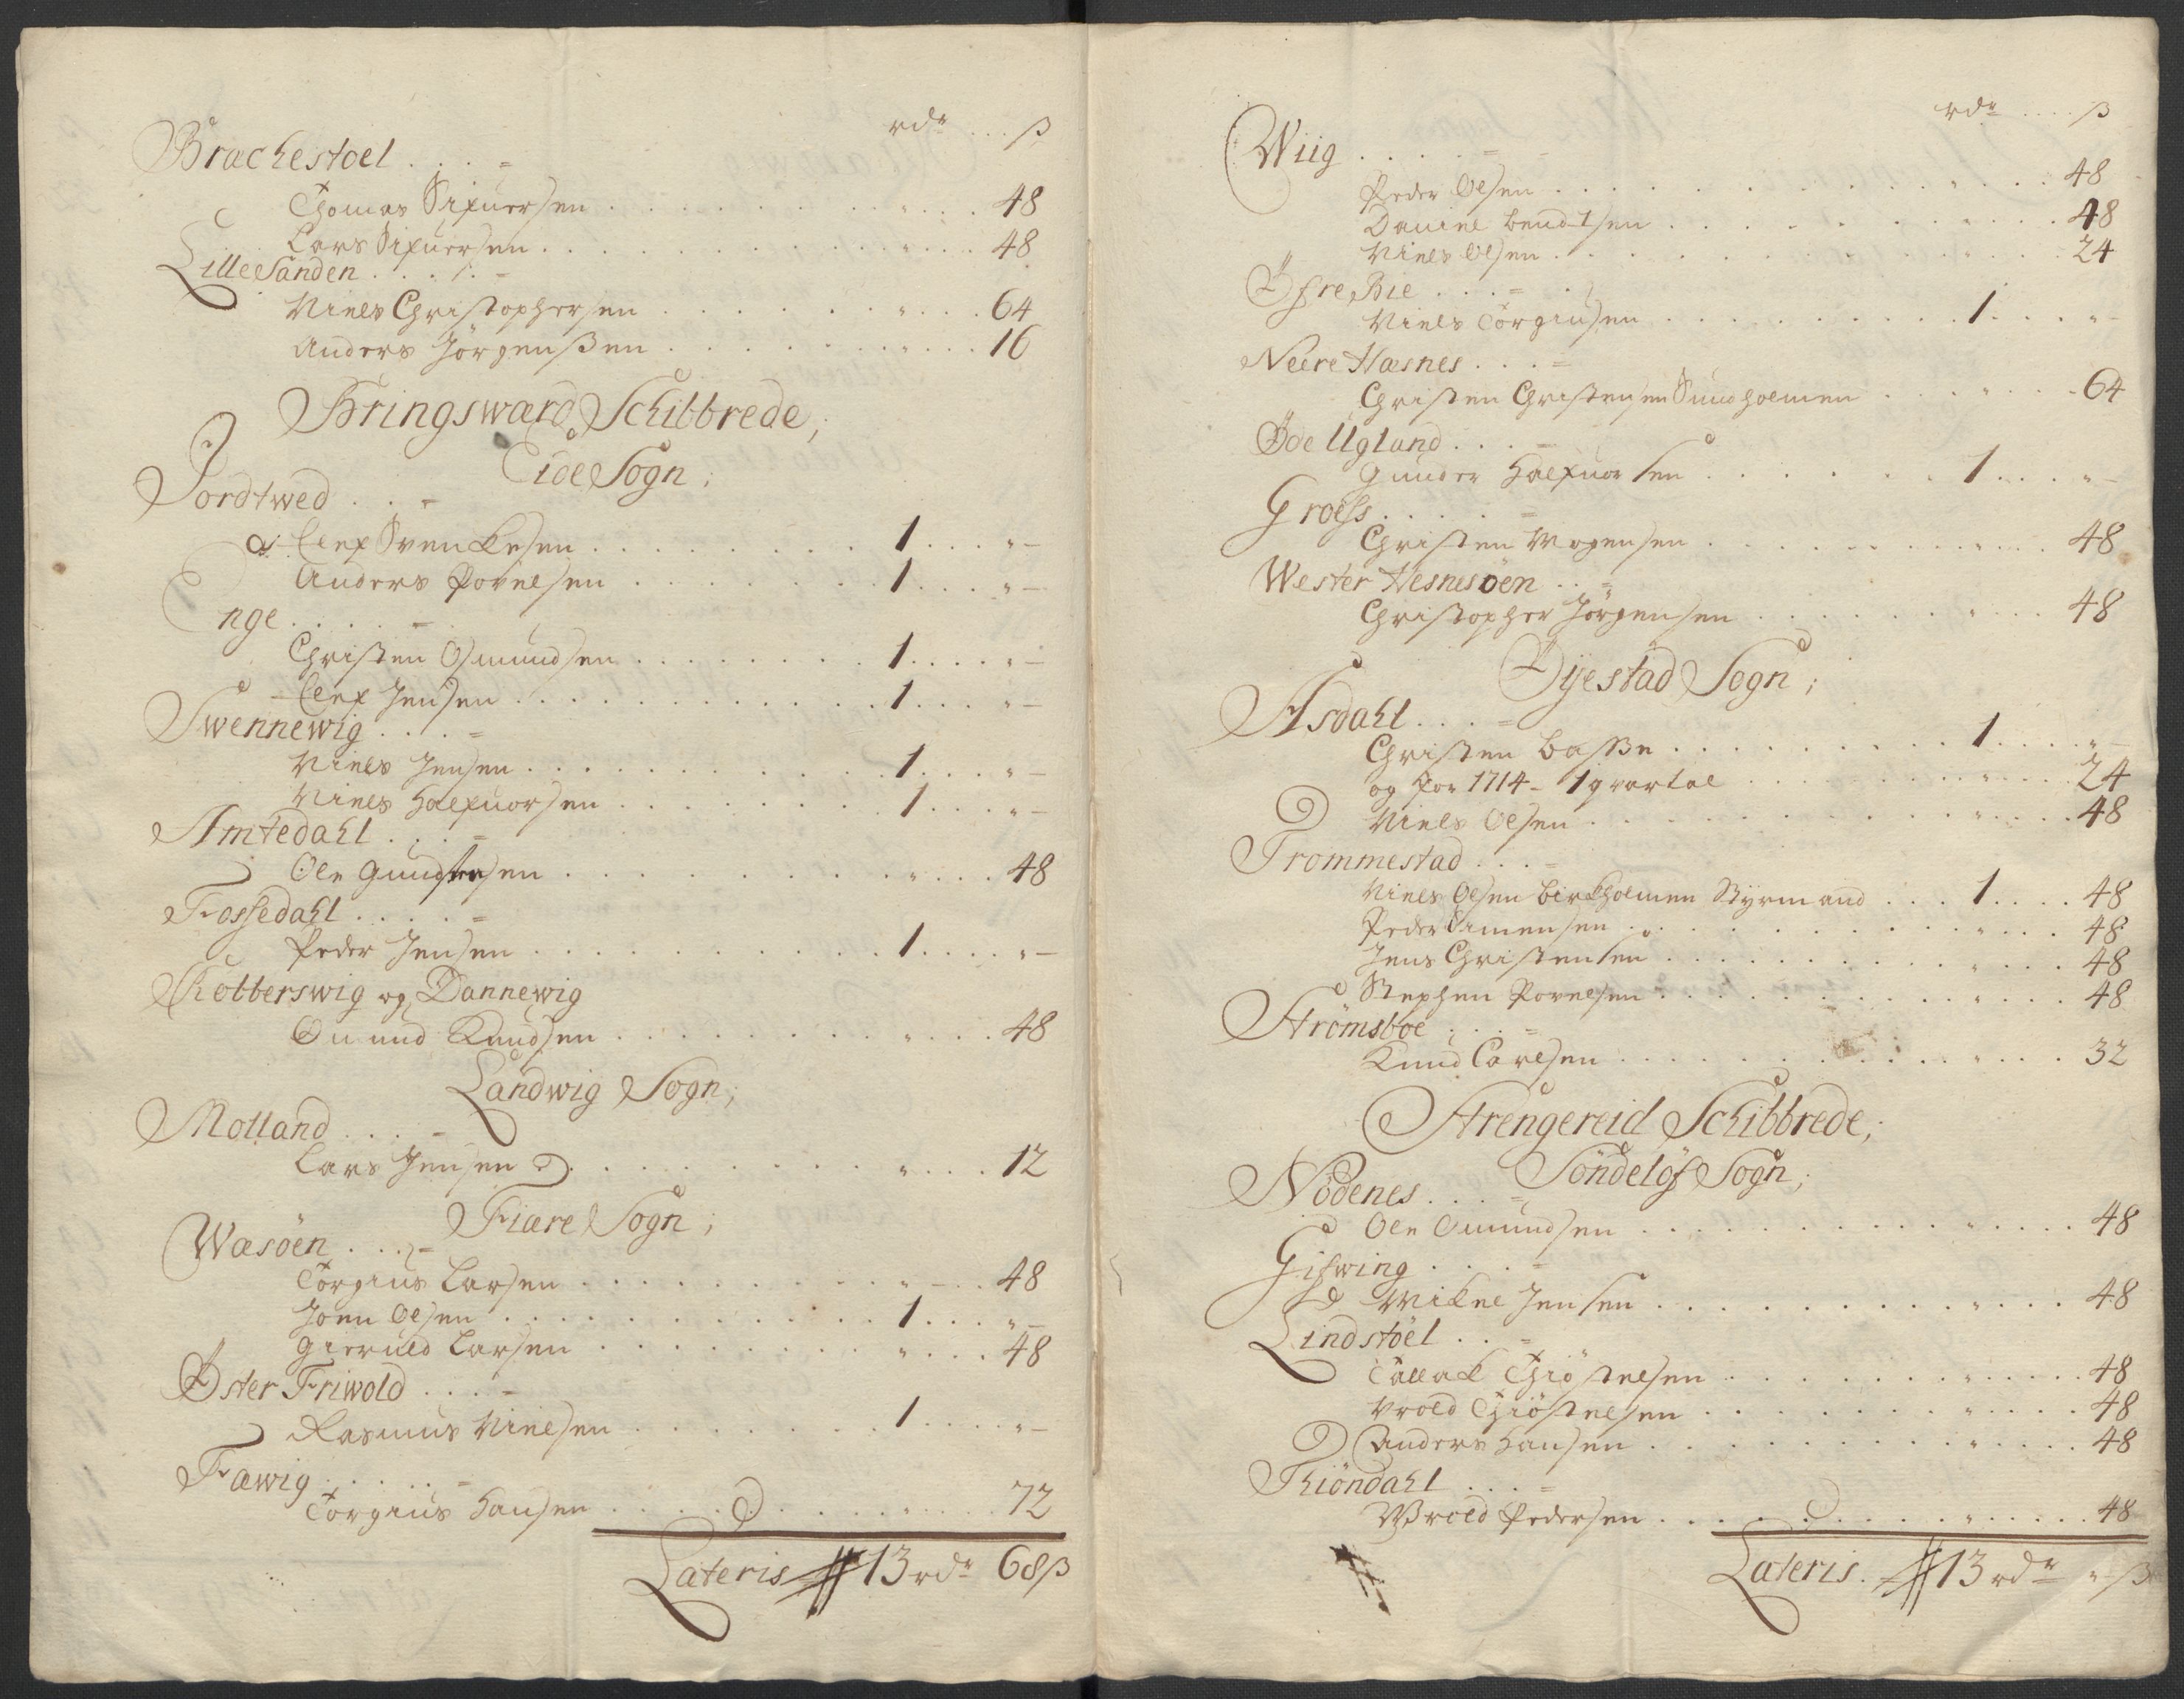 rdr ... ß
Brachestoel . . . =
Thomas Sifuersen . . . . . . . " . . . 48
Lars Sifuersen . . . . . . . " . . . 48
LilleSanden . . . . =
Niels Christophersen . . . . . . " . . . 64
Anders Jörgenßen . . . . . . " . . . 16
Bringsværd Schibbrede;
Eide Sogn;
Jordtwed . . . =
Olef Svenkesen . . . . . . 1 . . . " –
Anders Povelsen . . . . . . 1 . . . " –
Enge . . . . . =
Christen Osmundsen . . . . . . 1 . . . " –
Olef Jensen . . . . . . . . 1 . . . " –
Swennewig . . . . =
Niels Jensen . . . . . . . 1 . . . " –
Niels Halfuorsen . . . . . . 1 . . . " –
Amtedahl . . . =
Ole Gundersen . . . . . . . " . . . 48
Fossedahl . . . . . =
Peder Jensen . . . . . . . 1 . . . " –
Kolberswig og Dannewig
Omund Knudsen . . . . . . . " . . . 48
Landwig Sogn;
Molland . . . . =
Lars Jensen . . . . . . . " . . . 12
Fiære Sogn;
Wæsöen . . . =
Torgius Larsen . . . . . . . " . . . 48
Joen Olsen . . . . . . . 1 . . . " –
Gieruld Larsen . . . . . . . " . . . 48
Öster Friwold . . . . =
Rasmus Nielsen . . . . . . . 1 . . . " –
Fæwig . . . . . =
Torgius Hansen . . . . . . " . . . 72
Lateris 13 rdr 68 ß
rdr .... ß
Wiig . . . . . = –
Peder Olsen . . . . . . . " . . . 48
Daniel Bendtsen . . . . . . . " . . . 48
Niels Olsen . . . . . . . " . . . 24
Öfre Bie . . . = .
Niels Torgiusen . . . . . . . 1 . . . " –
Neere Hæsnes . . . =
Christen Christensen Sundholmen . . . . " . . . 64
Öde Ugland . . . . =
Gunder Halfuorsen . . . . . . 1 . . . " –
Groess . . . . . =
Christen Mogensen . . . . . . " . . . 48
Wester Hesnesöen . . =
Christopher Jörgensen . . . . . . " . . . 48
Öyestad Sogn;
Asdahl . . . . =
Christen Basse . . . . . . . 1 . . . " –
og for 1714 – 1 qvartal . . . . . " . . . 24
Niels Olsen . . . . . . . " . . . 48
Trommestad . . . =
Niels Olsen Birkholmen Styrmand . . . 1 . . . . 48
Peder Simensen . . . . . . . " . . . 48
Jens Christensen . . . . . . . " . . . 48
Stephen Povelsen . . . . . . . " . . . 48
Strömsboe . . . =
Knud Carlsen . . . . . . . " . . . 32
Strengereid Schibbrede;
Söndelöf Sogn;
Nödenes . . . =
Ole Omundsen . . . . . . . " . . . 48
Gifwing . . . =
Mikel Jensen . . . . . . . " . . . 48
Lindstöel . . =
Tallak Thiöstelsen . . . . . . " . . . 48
Vrold Thiöstelsen . . . . . . " . . . 48
Anders Hansen . . . . . . . " . . . 48
Thiöndahl . . . =
Wrold Pedersen . . . . . . . " . . . 48
Lateris . 13 rdr " ß